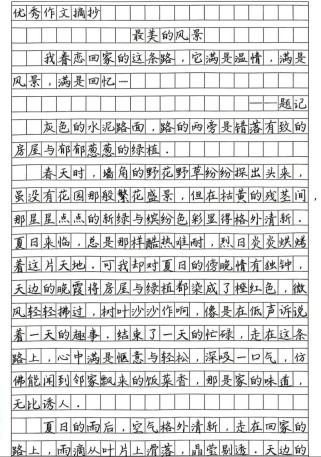 优秀作文摘抄
最美的风景
我眷恋回家的这条路，它满是温情，满是
风景，满是回忆—
——题记
灰色的水泥路面，路的两旁是错落有致的
房屋与郁郁葱葱的绿植．
春天时，墙角的野花野草纷纷探出头来，
虽没有花园那般繁花盛景，但在枯黄的残茎间，
那星星点点的新绿与缤纷色彩显得格外清新．
夏日来临，总是那样酷热难耐，烈日炎炎烘烤
着这片天地．可我却对夏日的傍晚情有独钟，
天边的晚霞将房屋与绿植都染成了橙红色，微
风轻轻拂过，树叶沙沙作响，像是在低声诉说
着一天的趣事．结束了一天的忙碌，走在这条
路上，心中满是惬意与轻松，深吸一口气，仿
佛能闻到邻家飘来的饭菜香，那是家的味道，
无比诱人．
夏日的雨后，空气格外清新，走在回家的
路上，雨滴从叶片上滑落，晶莹剔透．天边的